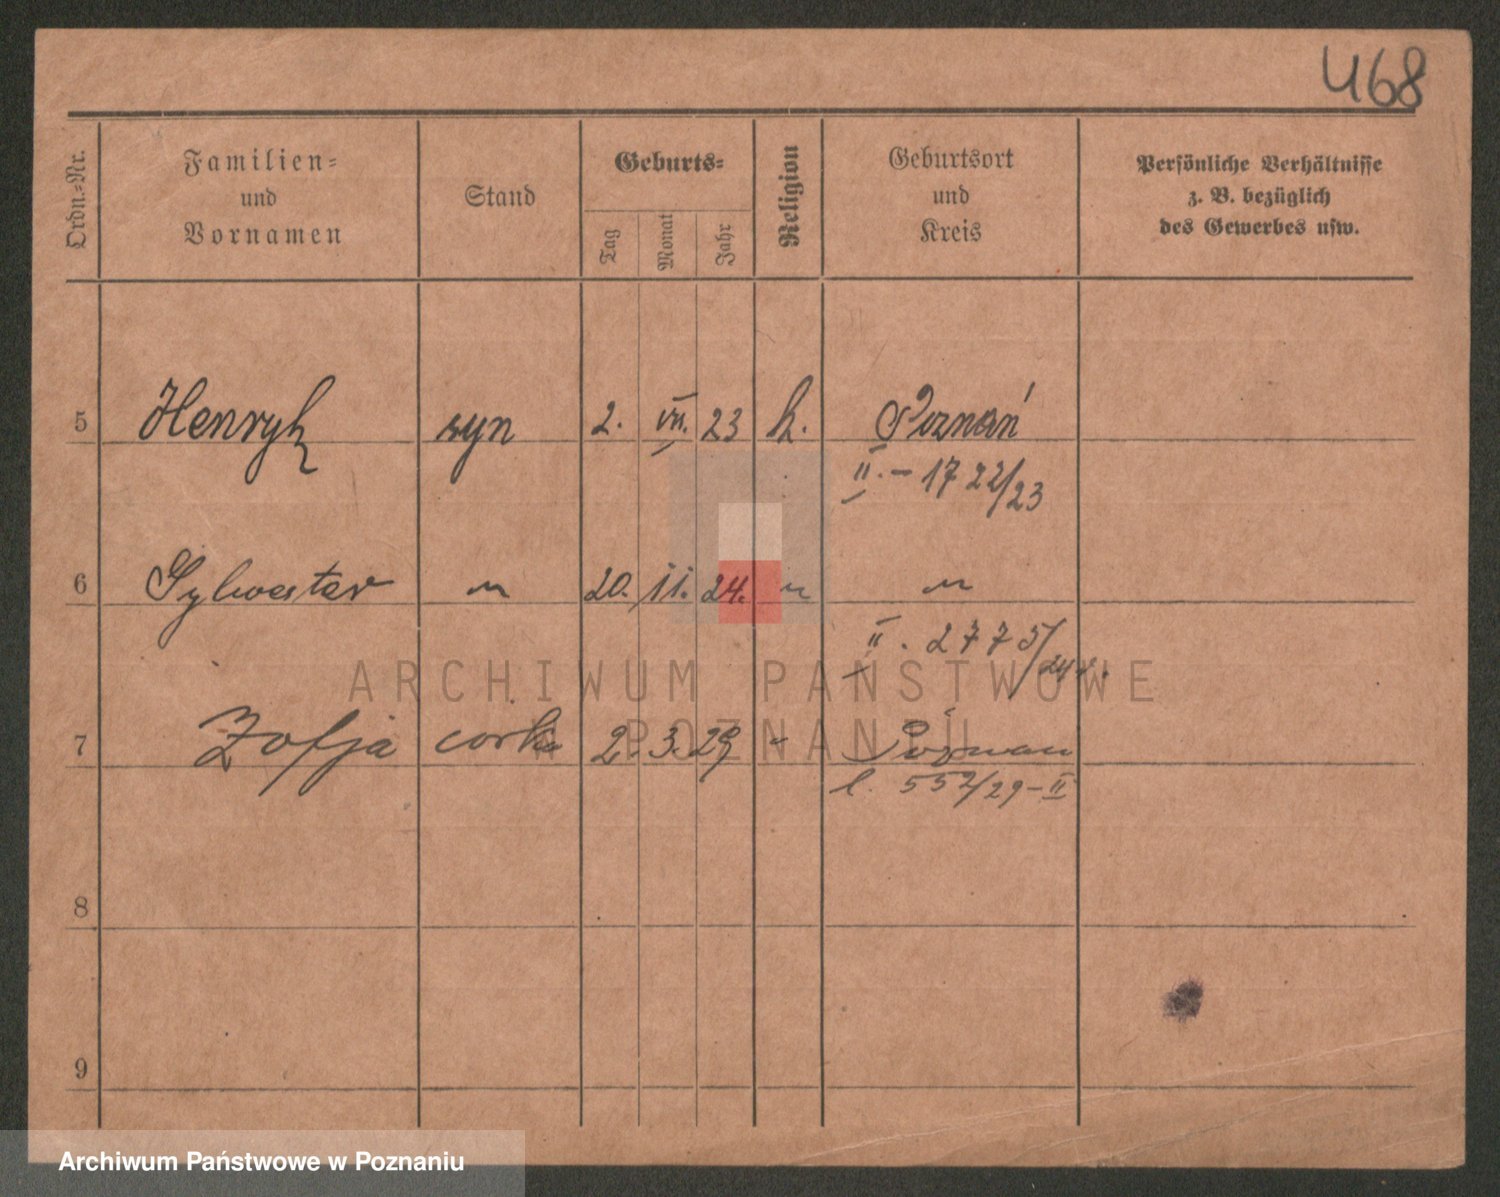 468
Ordn.-Nr.
Familien-
und
Vornamen
Stand
Geburts-
Tag
Monat
Jahr
Religion
Geburtsort
und
Kreis
Persönliche Verhältnisse
z. B. bezüglich
des Gewerbes usw.
5 Henryk syn 2. VII. 23 k. Poznań
II. - 1722/23
6 Sylwester " 20. 11. 24. " "
II. 2775/24 r.
7 Zofja córka 2. 3. 29 " Poznań
l. 552/29-II
8
9
ARCHIWUM PAŃSTWOWE
W POZNANIU
Archiwum Państwowe w Poznaniu